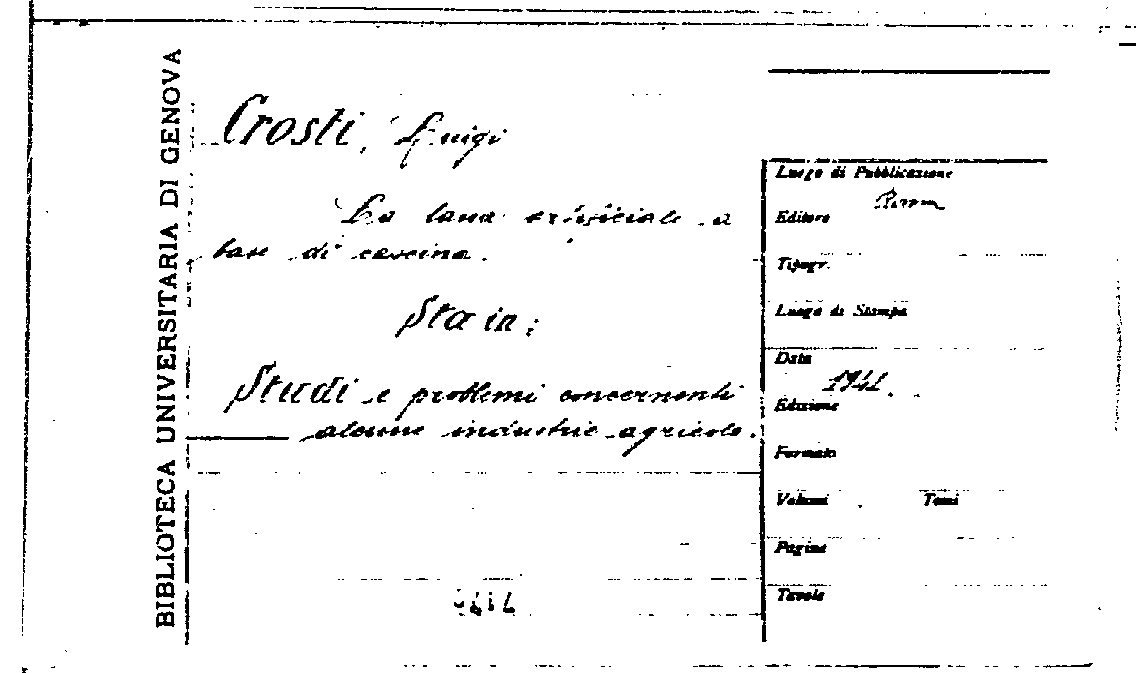 BIBLIOTECA UNIVERSITARIA DI GENOVA
Crosti, Luigi
La lana artificiale a
base di caseina.
Sta in:
Studi e problemi concernenti
alcune industrie agricole.
Luogo di Pubblicazione
Roma
Editore
Tipogr.
Luogo di Stampa
Data
1941.
Edizione
Formato
Volumi Tomi
Pagine
Tavole